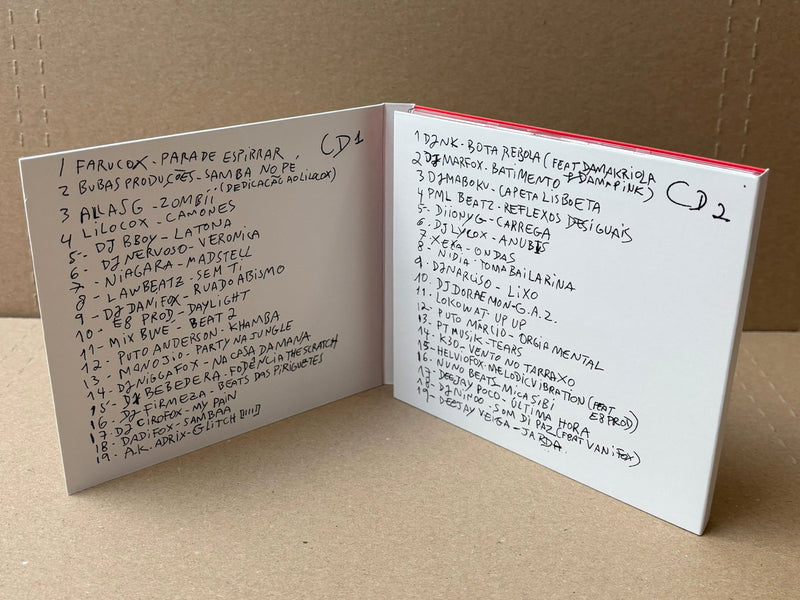 CD1
1 FARUCOX - PARADE ESPIRRAR
2 BUBAS PRODUÇÕES - SAMBA NO PÉ
(DEDICAÇÃO AO LILOCOX)
3 ALLAS G - ZOMBÍÍ
4 LILOCOX - CAMONES
5 - DJ BBOY - LATONA
6 - DJ NERVOSO - VERONICA
7 - NIAGARA - MADSTELL
8 - LAWBEATZ - SEM TI
9 - DJ DANIFOX - RUA DO ABISMO
10 - E8 PROD - DAYLIGHT
11 - MIX BWE - BEAT 2
12 - PUTO ANDERSON - KHAMBA
13 - MONOJIO - PARTY NA JUNGLE
14 - DJ NIGGAFOX - NA CASA DA MANA
15 - DJ BEBEDERA - FODÊNCIA THE SCRATCH
16 - DJ FIRMEZA - BEATS DAS PIRIGUETES
17 - DJ CIROFOX - MY PAIN
18 - DADIFOX - SAMBAA
19 - A.K. ADRIX - GLITCH
CD 2
1 DJ NK - BOTA REBOLA (FEAT DAMA KRIOLA
& DAMA PINK)
2 DJ MARFOX - BATIMENTO
3 DJ MABOKU - CAPETA LISBOETA
4 PML BEATZ - REFLEXOS DESIGUAIS
5 - DIIONY G - CARREGA
6 - DJ LYCOX - ANUBIS
7 - XEXA - ONDAS
8 - NÍDIA - TOMA BAILARINA
9 - DJ NARCISO - LIXO
10 - DJ DORAEMON - G.A.Z.
11 - LOKOWAT UP UP
12 - PUTO MÁRCIO - ORGIA MENTAL
13 - PT MUSIK - TEARS
14 - K30 - VENTO NO TARRAXO
15 - HELVIOFOX - MELODIC VIBRATION (FEAT
E8 PROD)
16 - NUNO BEATS - MICA SIBI
17 - DEEJAY POCO - ÚLTIMA HORA
18 - DJ NINOO - SOM DI PAZ (FEAT VANIFOX)
19 - DEEJAY VEIGA - JABDA